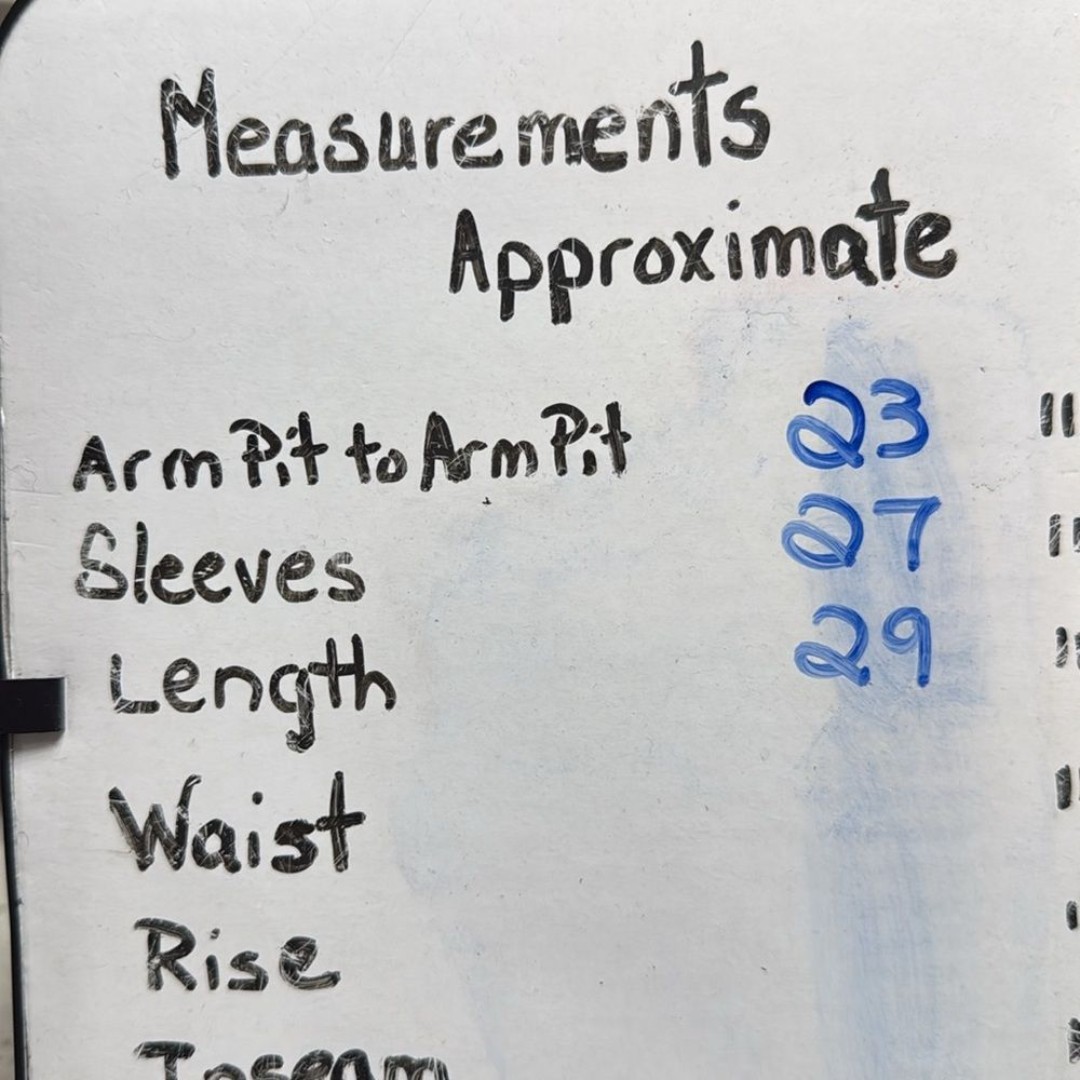 Measurements
Approximate
ArmPit to ArmPit 23 "
Sleeves 27 "
Length 29 "
Waist "
Rise "
Inseam "